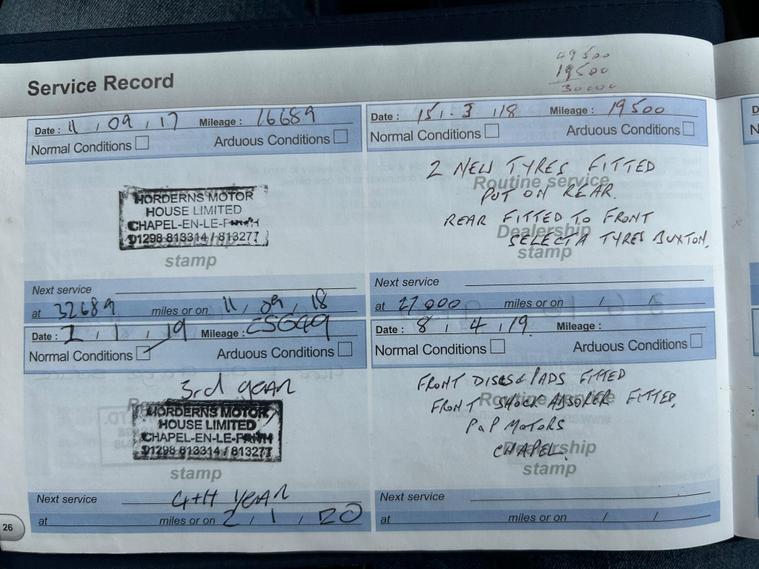 Service Record
49500
19500
30000
Date : 11 , 09 , 17 Mileage : 16689
Normal Conditions Arduous Conditions
HORDERNS MOTOR
HOUSE LIMITED
CHAPEL-EN-LE-FRITH
01298 813314 / 813277
Dealership
stamp
Next service
at 32689 miles or on 11 , 09 , 18
Date : 15 . 3 , 18 Mileage : 19500
Normal Conditions Arduous Conditions
2 NEW TYRES FITTED
Routine service
PUT ON REAR.
REAR FITTED TO FRONT
Dealership
SELECTA TYRES BUXTON.
stamp
Next service
at 27000 miles or on / /
Date : 2 , 1 , 19 Mileage :
Normal Conditions Arduous Conditions
3rd year
HORDERNS MOTOR
HOUSE LIMITED
CHAPEL-EN-LE-FRITH
01298 813314 / 813277
stamp
Next service 4tH year
at miles or on 2 , 1 , 20
Date : 8 , 4 , 19. Mileage :
Normal Conditions Arduous Conditions
FRONT DISCS & PADS FITTED
Routine service
FRONT SHOCK ABSORER FITTED.
P&P MOTORS
Dealership
CHAPEL.
stamp
Next service
at miles or on / /
26